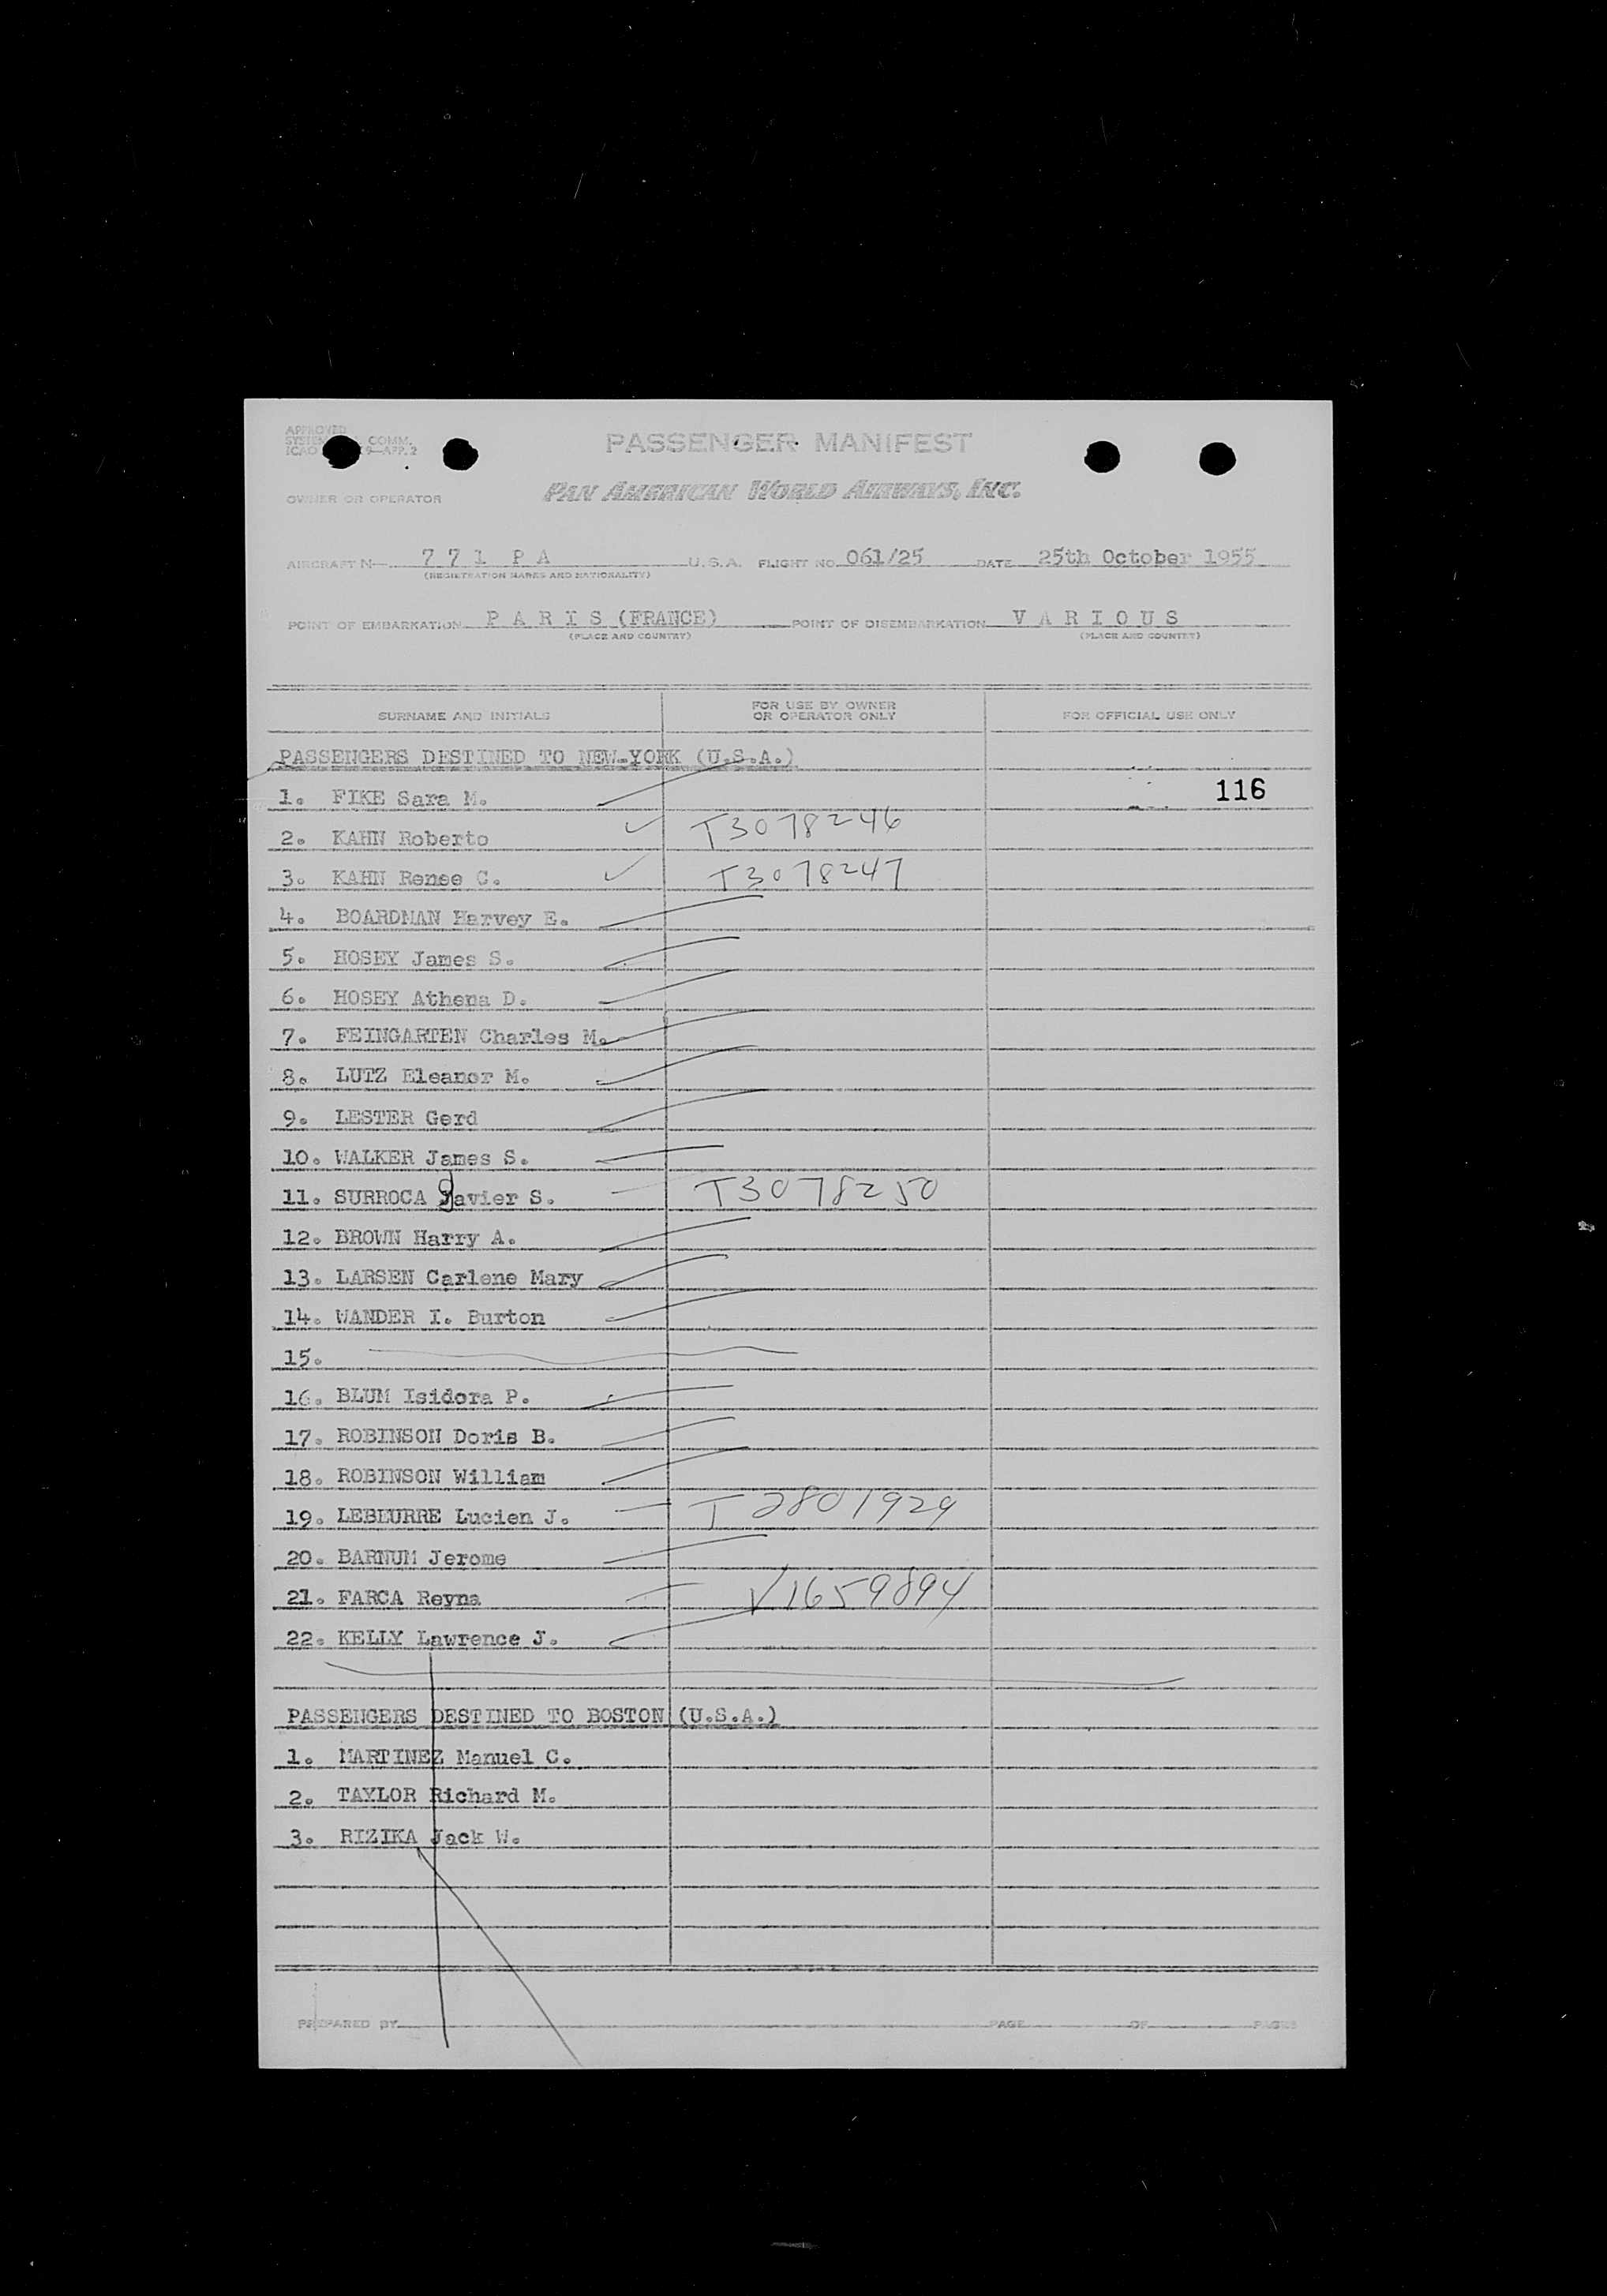 APPROVED
SYSTEM COMM.
ICAO 9—APP. 2
PASSENGER MANIFEST
OWNER OR OPERATOR PAN AMERICAN WORLD AIRWAYS, INC.
AIRCRAFT N— 7 7 1 P A U.S.A. FLIGHT NO. 061/25 DATE 25th October 1955
(REGISTRATION MARKS AND NATIONALITY)
POINT OF EMBARKATION P A R I S (FRANCE) POINT OF DISEMBARKATION V A R I O U S
(PLACE AND COUNTRY) (PLACE AND COUNTRY)
SURNAME AND INITIALS FOR USE BY OWNER OR OPERATOR ONLY FOR OFFICIAL USE ONLY
PASSENGERS DESTINED TO NEW-YORK (U.S.A.)
1. FIKE Sara M. 116
2. KAHN Roberto T3078246
3. KAHN Renee C. T3078247
4. BOARDMAN Harvey E.
5. HOSEY James S.
6. HOSEY Athena D.
7. FEINGARTEN Charles M.
8. LUTZ Eleanor M.
9. LESTER Gerd
10. WALKER James S.
11. SURROCA Javier S. T3078250
12. BROWN Harry A.
13. LARSEN Carlene Mary
14. WANDER I. Burton
15.
16. BLUM Isidora P.
17. ROBINSON Doris B.
18. ROBINSON William
19. LEBEURRE Lucien J. T2801929
20. BARNUM Jerome
21. FARCA Reyna V1659894
22. KELLY Lawrence J.
PASSENGERS DESTINED TO BOSTON (U.S.A.)
1. MARTINEZ Manuel C.
2. TAYLOR Richard M.
3. RIZIKA Jack W.
PREPARED BY PAGE OF PAGES